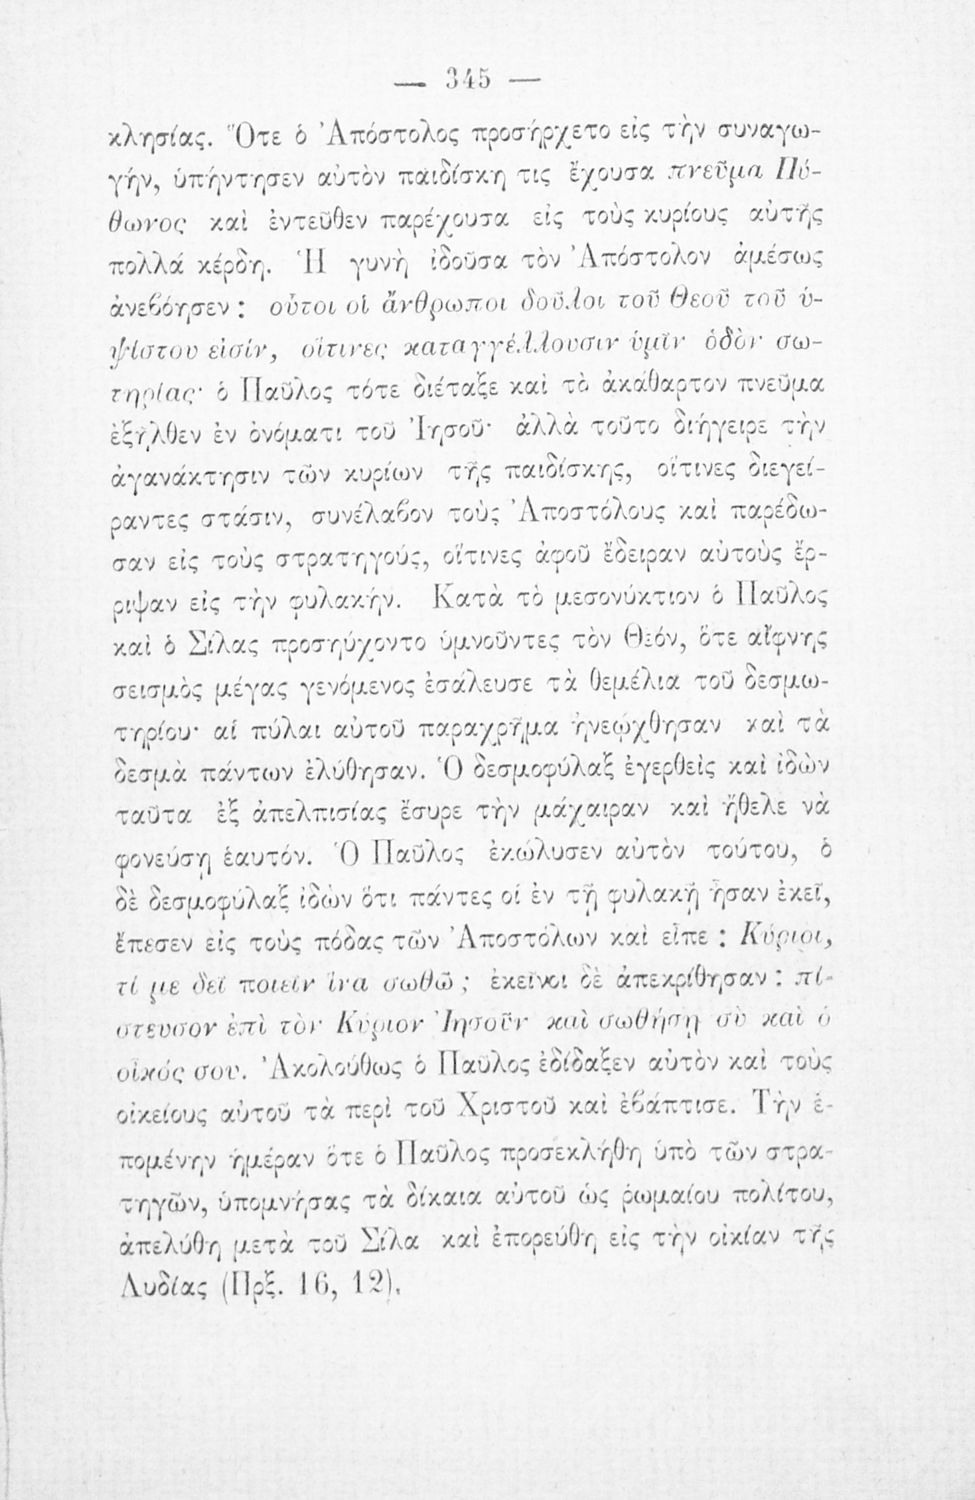 — 345 —
κλησίας. Ὅτε ὁ Ἀπόστολος προσήρχετο εἰς τὴν συναγω-
γήν, ὑπήντησεν αὐτὸν παιδίσκη τις ἔχουσα πνεῦμα Πύ-
θωνος καὶ ἐντεῦθεν παρέχουσα εἰς τοὺς κυρίους αὐτῆς
πολλὰ κέρδη. Ἡ γυνὴ ἰδοῦσα τὸν Ἀπόστολον ἀμέσως
ἀνεβόησεν : οὗτοι οἱ ἄνθρωποι δοῦλοι τοῦ Θεοῦ τοῦ ὑ-
ψίστου εἰσίν, οἵτινες καταγγέλλουσιν ὑμῖν ὁδὸν σω-
τηρίας· ὁ Παῦλος τότε διέταξε καὶ τὸ ἀκάθαρτον πνεῦμα
ἐξῆλθεν ἐν ὀνόματι τοῦ Ἰησοῦ· ἀλλὰ τοῦτο διήγειρε τὴν
ἀγανάκτησιν τῶν κυρίων τῆς παιδίσκης, οἵτινες διεγεί-
ραντες στάσιν, συνέλαβον τοὺς Ἀποστόλους καὶ παρέδω-
σαν εἰς τοὺς στρατηγούς, οἵτινες ἀφοῦ ἔδειραν αὐτοὺς ἔρ-
ριψαν εἰς τὴν φυλακήν. Κατὰ τὸ μεσονύκτιον ὁ Παῦλος
καὶ ὁ Σίλας προσηύχοντο ὑμνοῦντες τὸν Θεόν, ὅτε αἴφνης
σεισμὸς μέγας γενόμενος ἐσάλευσε τὰ θεμέλια τοῦ δεσμω-
τηρίου· αἱ πύλαι αὐτοῦ παραχρῆμα ἠνεῴχθησαν καὶ τὰ
δεσμὰ πάντων ἐλύθησαν. Ὁ δεσμοφύλαξ ἐγερθεὶς καὶ ἰδὼν
ταῦτα ἐξ ἀπελπισίας ἔσυρε τὴν μάχαιραν καὶ ἤθελε νὰ
φονεύσῃ ἑαυτόν. Ὁ Παῦλος ἐκώλυσεν αὐτὸν τούτου, ὁ
δὲ δεσμοφύλαξ ἰδὼν ὅτι πάντες οἱ ἐν τῇ φυλακῇ ἦσαν ἐκεῖ,
ἔπεσεν εἰς τοὺς πόδας τῶν Ἀποστόλων καὶ εἶπε : Κύριοι,
τί με δεῖ ποιεῖν ἵνα σωθῶ ; ἐκεῖνοι δὲ ἀπεκρίθησαν : πί-
στευσον ἐπὶ τὸν Κύριον Ἰησοῦν καὶ σωθήσῃ σὺ καὶ ὁ
οἶκός σου. Ἀκολούθως ὁ Παῦλος ἐδίδαξεν αὐτὸν καὶ τοὺς
οἰκείους αὐτοῦ τὰ περὶ τοῦ Χριστοῦ καὶ ἐβάπτισε. Τὴν ἑ-
πομένην ἡμέραν ὅτε ὁ Παῦλος προσεκλήθη ὑπὸ τῶν στρα-
τηγῶν, ὑπομνήσας τὰ δίκαια αὐτοῦ ὡς ῥωμαίου πολίτου,
ἀπελύθη μετὰ τοῦ Σίλα καὶ ἐπορεύθη εἰς τὴν οἰκίαν τῆς
Λυδίας (Πρξ. 16, 12).